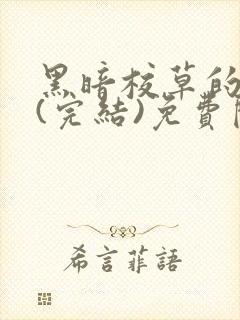 黑暗校草的
(完結)免費
希言菲語